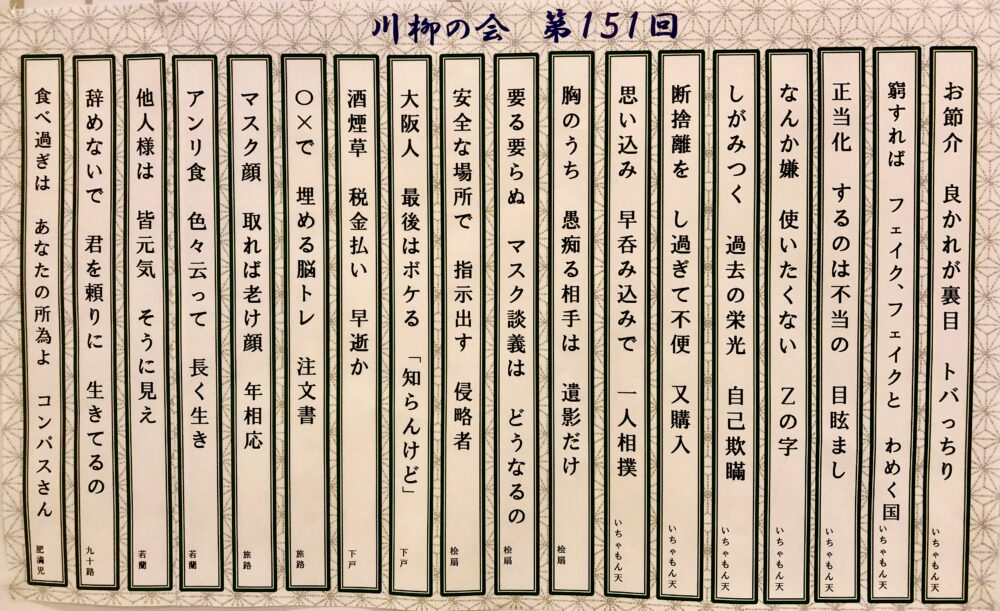 川柳の会　第151回
お節介　良かれが裏目　トバっちり　いちゃもん天
窮すれば　フェイク、フェイクと　わめく国　いちゃもん天
正当化　するのは不当の　目眩まし　いちゃもん天
なんか嫌　使いたくない　Zの字　いちゃもん天
しがみつく　過去の栄光　自己欺瞞　いちゃもん天
断捨離を　し過ぎて不便　又購入　いちゃもん天
思い込み　早呑み込みで　一人相撲　いちゃもん天
胸のうち　愚痴る相手は　遺影だけ　桧扇
要る要らぬ　マスク談義は　どうなるの　桧扇
安全な場所で　指示出す　侵略者　桧扇
大阪人　最後はボケる　「知らんけど」　下戸
酒煙草　税金払い　早逝か　下戸
〇×で　埋める脳トレ　注文書　旅路
マスク顔　取れば老け顔　年相応　旅路
アンリ食　色々云って　長く生き　若蘭
他人様は　皆元気　そうに見え　若蘭
辞めないで　君を頼りに　生きてるの　九十路
食べ過ぎは　あなたの所為よ　コンパスさん　肥満児